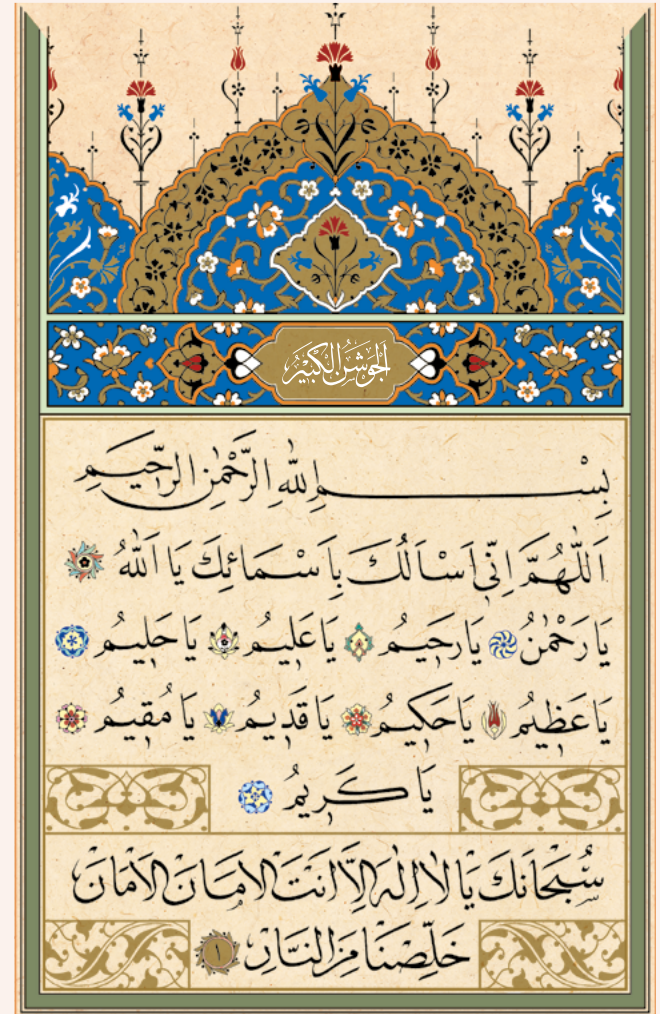 اَلْجَوْشَنُ الْكَبِيرُ
بِسْمِ اللّٰهِ الرَّحْمٰنِ الرَّحِيمِ
اَللّٰهُمَّ اِنِّى اَسْاَلُكَ بِاَسْمَائِكَ يَا اَللّٰهُ
يَا رَحْمٰنُ يَا رَحِيمُ يَا عَلِيمُ يَا حَلِيمُ
يَا عَظِيمُ يَا حَكِيمُ يَا قَدِيمُ يَا مُقِيمُ
يَا كَرِيمُ
سُبْحَانَكَ يَا لَا اِلٰهَ اِلَّا اَنْتَ الْاَمَانَ الْاَمَانَ
خَلِّصْنَا مِنَ النَّارِ ١